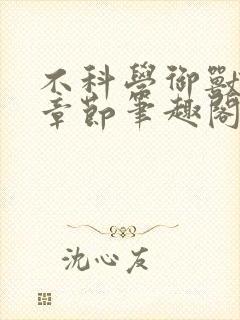 不科學御獸
章節筆趣閣
沈心友